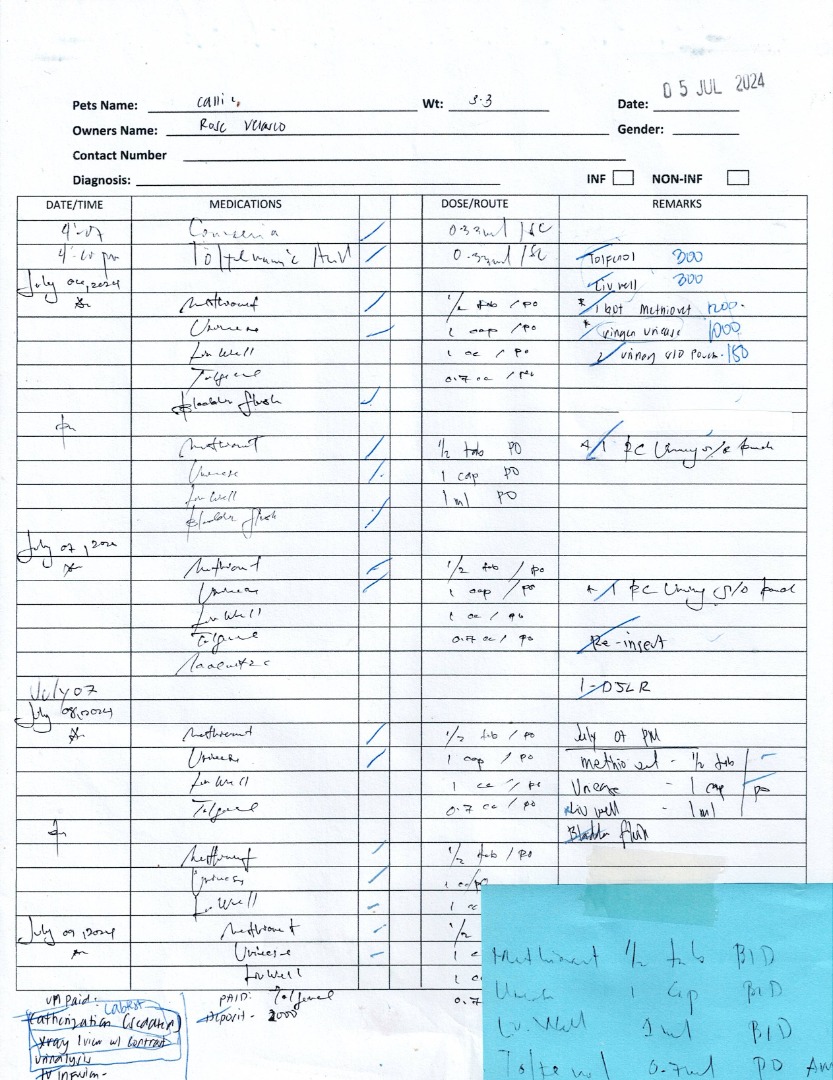 05 JUL 2024
Pets Name: Calli Wt: 3.3 Date:
Owners Name: Rose Velasco Gender:
Contact Number
Diagnosis: INF NON-INF
DATE/TIME MEDICATIONS DOSE/ROUTE REMARKS
Convenia 0.33ml / SC
Tolfenamic Acid 0.33ml / SC Tolfenol 300
July 06, 2024 Liv well 300
Methiovet 1/2 tab / PO * 1 bot Methiovet 1200.
Urinese 1 cap / PO * vingen urinese 1000
Liv Well 1 cc / PO 2 urinary s/o pouch. 150
Tolfenol 0.7 cc / PO
Bladder flush
Methiovet 1/2 tab PO 1 PC Urinary s/o pouch
Urinese 1 cap PO
Liv Well 1 ml PO
Bladder flush
July 07, 2024
Methiovet 1/2 tab / PO
Urinese 1 cap / PO 1 PC Urinary s/o pouch
Liv Well 1 cc / PO
Tolfenol 0.7 cc / PO Re-insert
July 07 1-D5LR
July 08, 2024
Methiovet 1/2 tab / PO July 07 PM
Urinese 1 cap / PO Methiovet - 1/2 tab
Liv Well 1 cc / PO Urinese - 1 cap PO
Tolfenol 0.7 cc / PO Liv well - 1 ml
Bladder flush
Methiovet 1/2 tab / PO
Urinese 1 cc/PO
Liv Well 1 cc
July 09, 2024 Methiovet 1/2
Urinese 1 c
Liv Well 1 c
PAID: Tolfenol 0.7
Deposit - 2000
unpaid.
Labtest
Catherization (sedation)
xray 1 view w/ contrast
urinalysis
IV infusion-
Methiovet 1/2 tab BID
Urinese 1 cap BID
Liv. Well 1 ml BID
Tolfenol 0.7ml PO AM